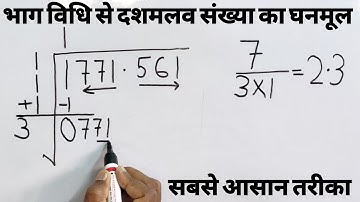 भाग विधि से दशमलव संख्या का घनमूल
1
1 1771.561
+1 -1
3 0771
7
3×1 = 2.3
सबसे आसान तरीका